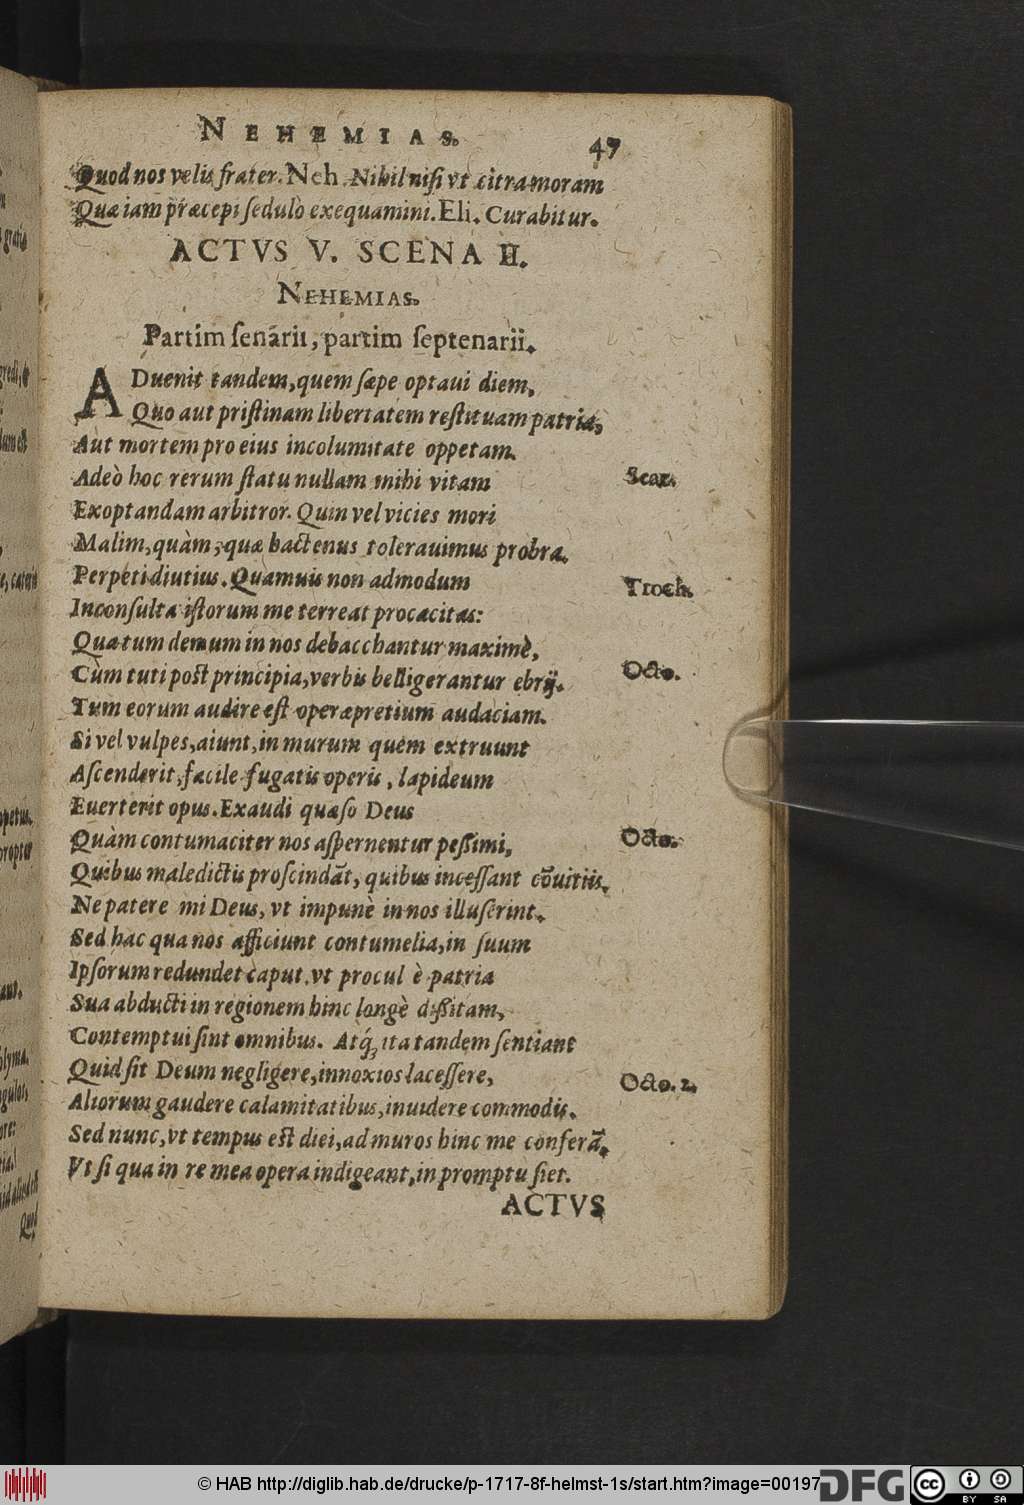 NEHEMIAS. 47
Quod nos velis frater. Neh. Nihil nisi vt citra moram
Quæ iam præcepi ſedulò exequamini. Eli. Curabitur.
ACTVS V. SCENA II.
NEHEMIAS.
Partim ſenarii, partim ſeptenarii.
ADuenit tandem, quem ſæpe optaui diem,
Quo aut priſtinam libertatem reſtituam patriæ,
Aut mortem pro eius incolumitate oppetam.
Adeò hoc rerum ſtatu nullam mihi vitam Scaz.
Exoptandam arbitror. Quin vel vicies mori
Malim, quàm, quæ hactenus tolerauimus probra.
Perpeti diutius. Quamuis non admodum Troch.
Inconſulta iſtorum me terreat procacitas:
Quæ tum demum in nos debacchantur maximè,
Cùm tuti poſt principia, verbis belligerantur ebrij. Octo.
Tum eorum audire eſt operæpretium audaciam.
Si vel vulpes, aiunt, in murum quem extruunt
Aſcenderit, facile fugatis operis, lapideum
Euerterit opus. Exaudi quæſo Deus
Quàm contumaciter nos aſpernentur peſſimi, Octo.
Quibus maledictis proſcindāt, quibus inceſſant cōuitiis.
Ne patere mi Deus, vt impunè in nos illuſerint.
Sed hac qua nos afficiunt contumelia, in ſuum
Ipſorum redundet caput. vt procul è patria
Sua abducti in regionem hinc longè diſſitam,
Contemptui ſint omnibus. Atq́; ita tandem ſentiant
Quid ſit Deum negligere, innoxios laceſſere, Octo. 2.
Aliorum gaudere calamitatibus, inuidere commodis.
Sed nunc, vt tempus eſt diei, ad muros hinc me conferā.
Vt ſi qua in re mea opera indigeant, in promptu ſiet.
ACTVS
© HAB http://diglib.hab.de/drucke/p-1717-8f-helmst-1s/start.htm?image=00197
DFG
cc BY SA